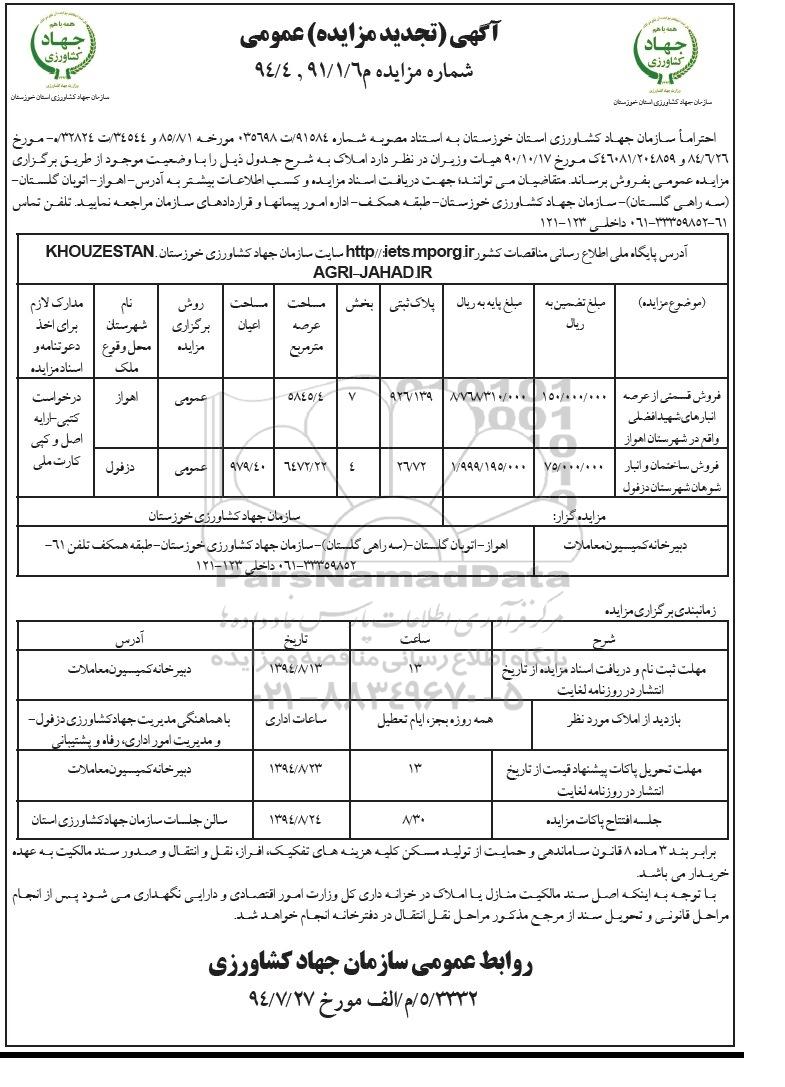 همه با هم
جهاد
کشاورزی
وزارت جهاد کشاورزی
سازمان جهاد کشاورزی استان خوزستان
آگهی (تجدید مزایده) عمومی
شماره مزایده م۹۱/۱/۶ , ۹۴/۴
همه با هم
جهاد
کشاورزی
وزارت جهاد کشاورزی
سازمان جهاد کشاورزی استان خوزستان
احتراماً سازمان جهاد کشاورزی استان خوزستان به استناد مصوبه شماره ۹۱۵۸۴/ت ۰۳۵۶۹۸ مورخه ۸۵/۸/۱ و ۳۴۵۴۴/ت ۳۲۸۲۴/ه- مورخ
۸۴/۶/۲۶ و ۴۶۰۸۱/۲۰۴۸۵۹ک مورخ ۹۰/۱۰/۱۷ هیات وزیران در نظر دارد املاک به شرح جدول ذیل را با وضعیت موجود از طریق برگزاری
مزایده عمومی بفروش برساند. متقاضیان می توانند؛ جهت دریافت اسناد مزایده و کسب اطلاعات بیشتر به آدرس- اهواز- اتوبان گلستان-
(سه راهی گلستان)- سازمان جهاد کشاورزی خوزستان- طبقه همکف- اداره امور پیمانها و قراردادهای سازمان مراجعه نمایید. تلفن تماس
۶۱-۳۳۳۵۹۸۵۲-۰۶۱ داخلی ۱۲۳-۱۲۱
آدرس پایگاه ملی اطلاع رسانی مناقصات کشور http//:iets.mporg.ir سایت سازمان جهاد کشاورزی خوزستان .KHOUZESTAN
AGRI-JAHAD.IR
(موضوع مزایده) مبلغ تضمین به ریال مبلغ پایه به ریال پلاک ثبتی بخش مساحت عرصه مترمربع مساحت اعیان روش برگزاری مزایده نام شهرستان محل وقوع ملک مدارک لازم برای اخذ دعوتنامه و اسناد مزایده
فروش قسمتی از عرصه انبارهای شهید افضلی واقع در شهرستان اهواز ۱۵۰/۰۰۰/۰۰۰ ۸/۷۶۸/۳۱۰/۰۰۰ ۹۲۶/۱۳۹ ۷ ۵۸۴۵/۴ عمومی اهواز درخواست کتبی-ارایه اصل و کپی کارت ملی
فروش ساختمان و انبار شوهان شهرستان دزفول ۷۵/۰۰۰/۰۰۰ ۱/۹۹۹/۱۹۵/۰۰۰ ۲۶/۷۲ ۴ ۶۴۷۲/۲۲ ۹۷۹/۴۰ عمومی دزفول
مزایده گزار: سازمان جهاد کشاورزی خوزستان
دبیرخانه کمیسیون معاملات اهواز-اتوبان گلستان-(سه راهی گلستان)-سازمان جهاد کشاورزی خوزستان-طبقه همکف تلفن ۶۱-
۳۳۳۵۹۸۵۲-۰۶۱ داخلی ۱۲۳-۱۲۱
ParsNamadData
مرکز فرآوری اطلاعات پارس نماد داده ها
پایگاه اطلاع رسانی مناقصه و مزایده
۰۲۱-۸۸۳۴۹۶۷۰-۵
زمانبندی برگزاری مزایده
شرح ساعت تاریخ آدرس
مهلت ثبت نام و دریافت اسناد مزایده از تاریخ انتشار در روزنامه لغایت ۱۳ ۱۳۹۴/۸/۱۳ دبیرخانه کمیسیون معاملات
بازدید از املاک مورد نظر همه روزه بجز، ایام تعطیل ساعات اداری با هماهنگی مدیریت جهاد کشاورزی دزفول- و مدیریت امور اداری، رفاه و پشتیبانی
مهلت تحویل پاکات پیشنهاد قیمت از تاریخ انتشار در روزنامه لغایت ۱۳ ۱۳۹۴/۸/۲۳ دبیرخانه کمیسیون معاملات
جلسه افتتاح پاکات مزایده ۸/۳۰ ۱۳۹۴/۸/۲۴ سالن جلسات سازمان جهاد کشاورزی استان
برابر بند ۳ ماده ۸ قانون ساماندهی و حمایت از تولید مسکن کلیه هزینه های تفکیک، افراز، نقل و انتقال و صدور سند مالکیت به عهده
خریدار می باشد.
با توجه به اینکه اصل سند مالکیت منازل یا املاک در خزانه داری کل وزارت امور اقتصادی و دارایی نگهداری می شود پس از انجام
مراحل قانونی و تحویل سند از مرجع مذکور مراحل نقل انتقال در دفترخانه انجام خواهد شد.
روابط عمومی سازمان جهاد کشاورزی
۵/۳۳۳۲/م/الف مورخ ۹۴/۷/۲۷